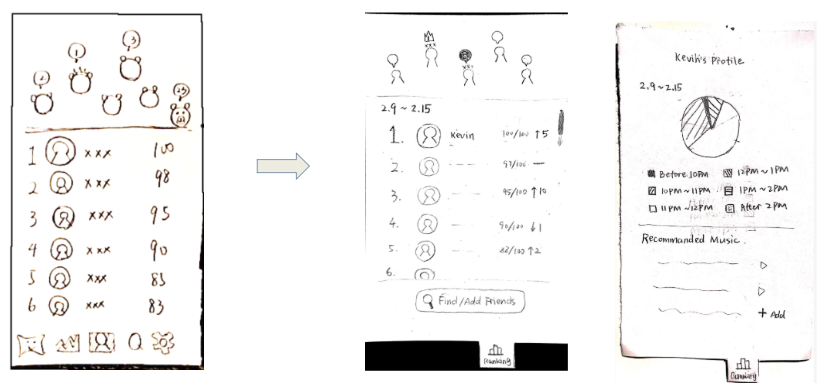 2 1 3 23
1 xxx 100
2 xxx 98
3 xxx 95
4 xxx 90
5 xxx 85
6 xxx 83
xxx
2.9 ~ 2.15
1. Kevin 100/100 ↑5
2. 97/100 —
3. 95/100 ↑10
4. 90/100 ↓1
5. 82/100 ↑2
6.
Find/Add Friends
Ranking
Kevin's Profile
2.9 ~ 2.15
Before 10PM 12PM ~ 1PM
10PM ~ 11PM 1PM ~ 2PM
11PM ~ 12PM After 2PM
Recommanded Music.
+ Add
Ranking